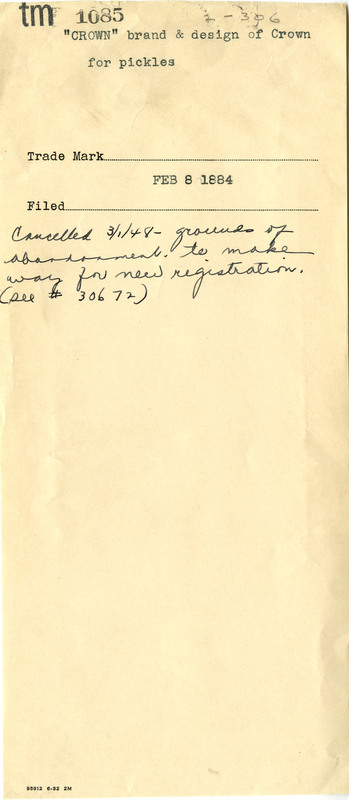 tm 1085 2-396
"CROWN" brand & design of Crown
for pickles
Trade Mark
FEB 8 1884
Filed
Cancelled 3/1/48 - grounds of
abandonment. to make
way for new registration.
(see # 30672)
95812 6-32 2M